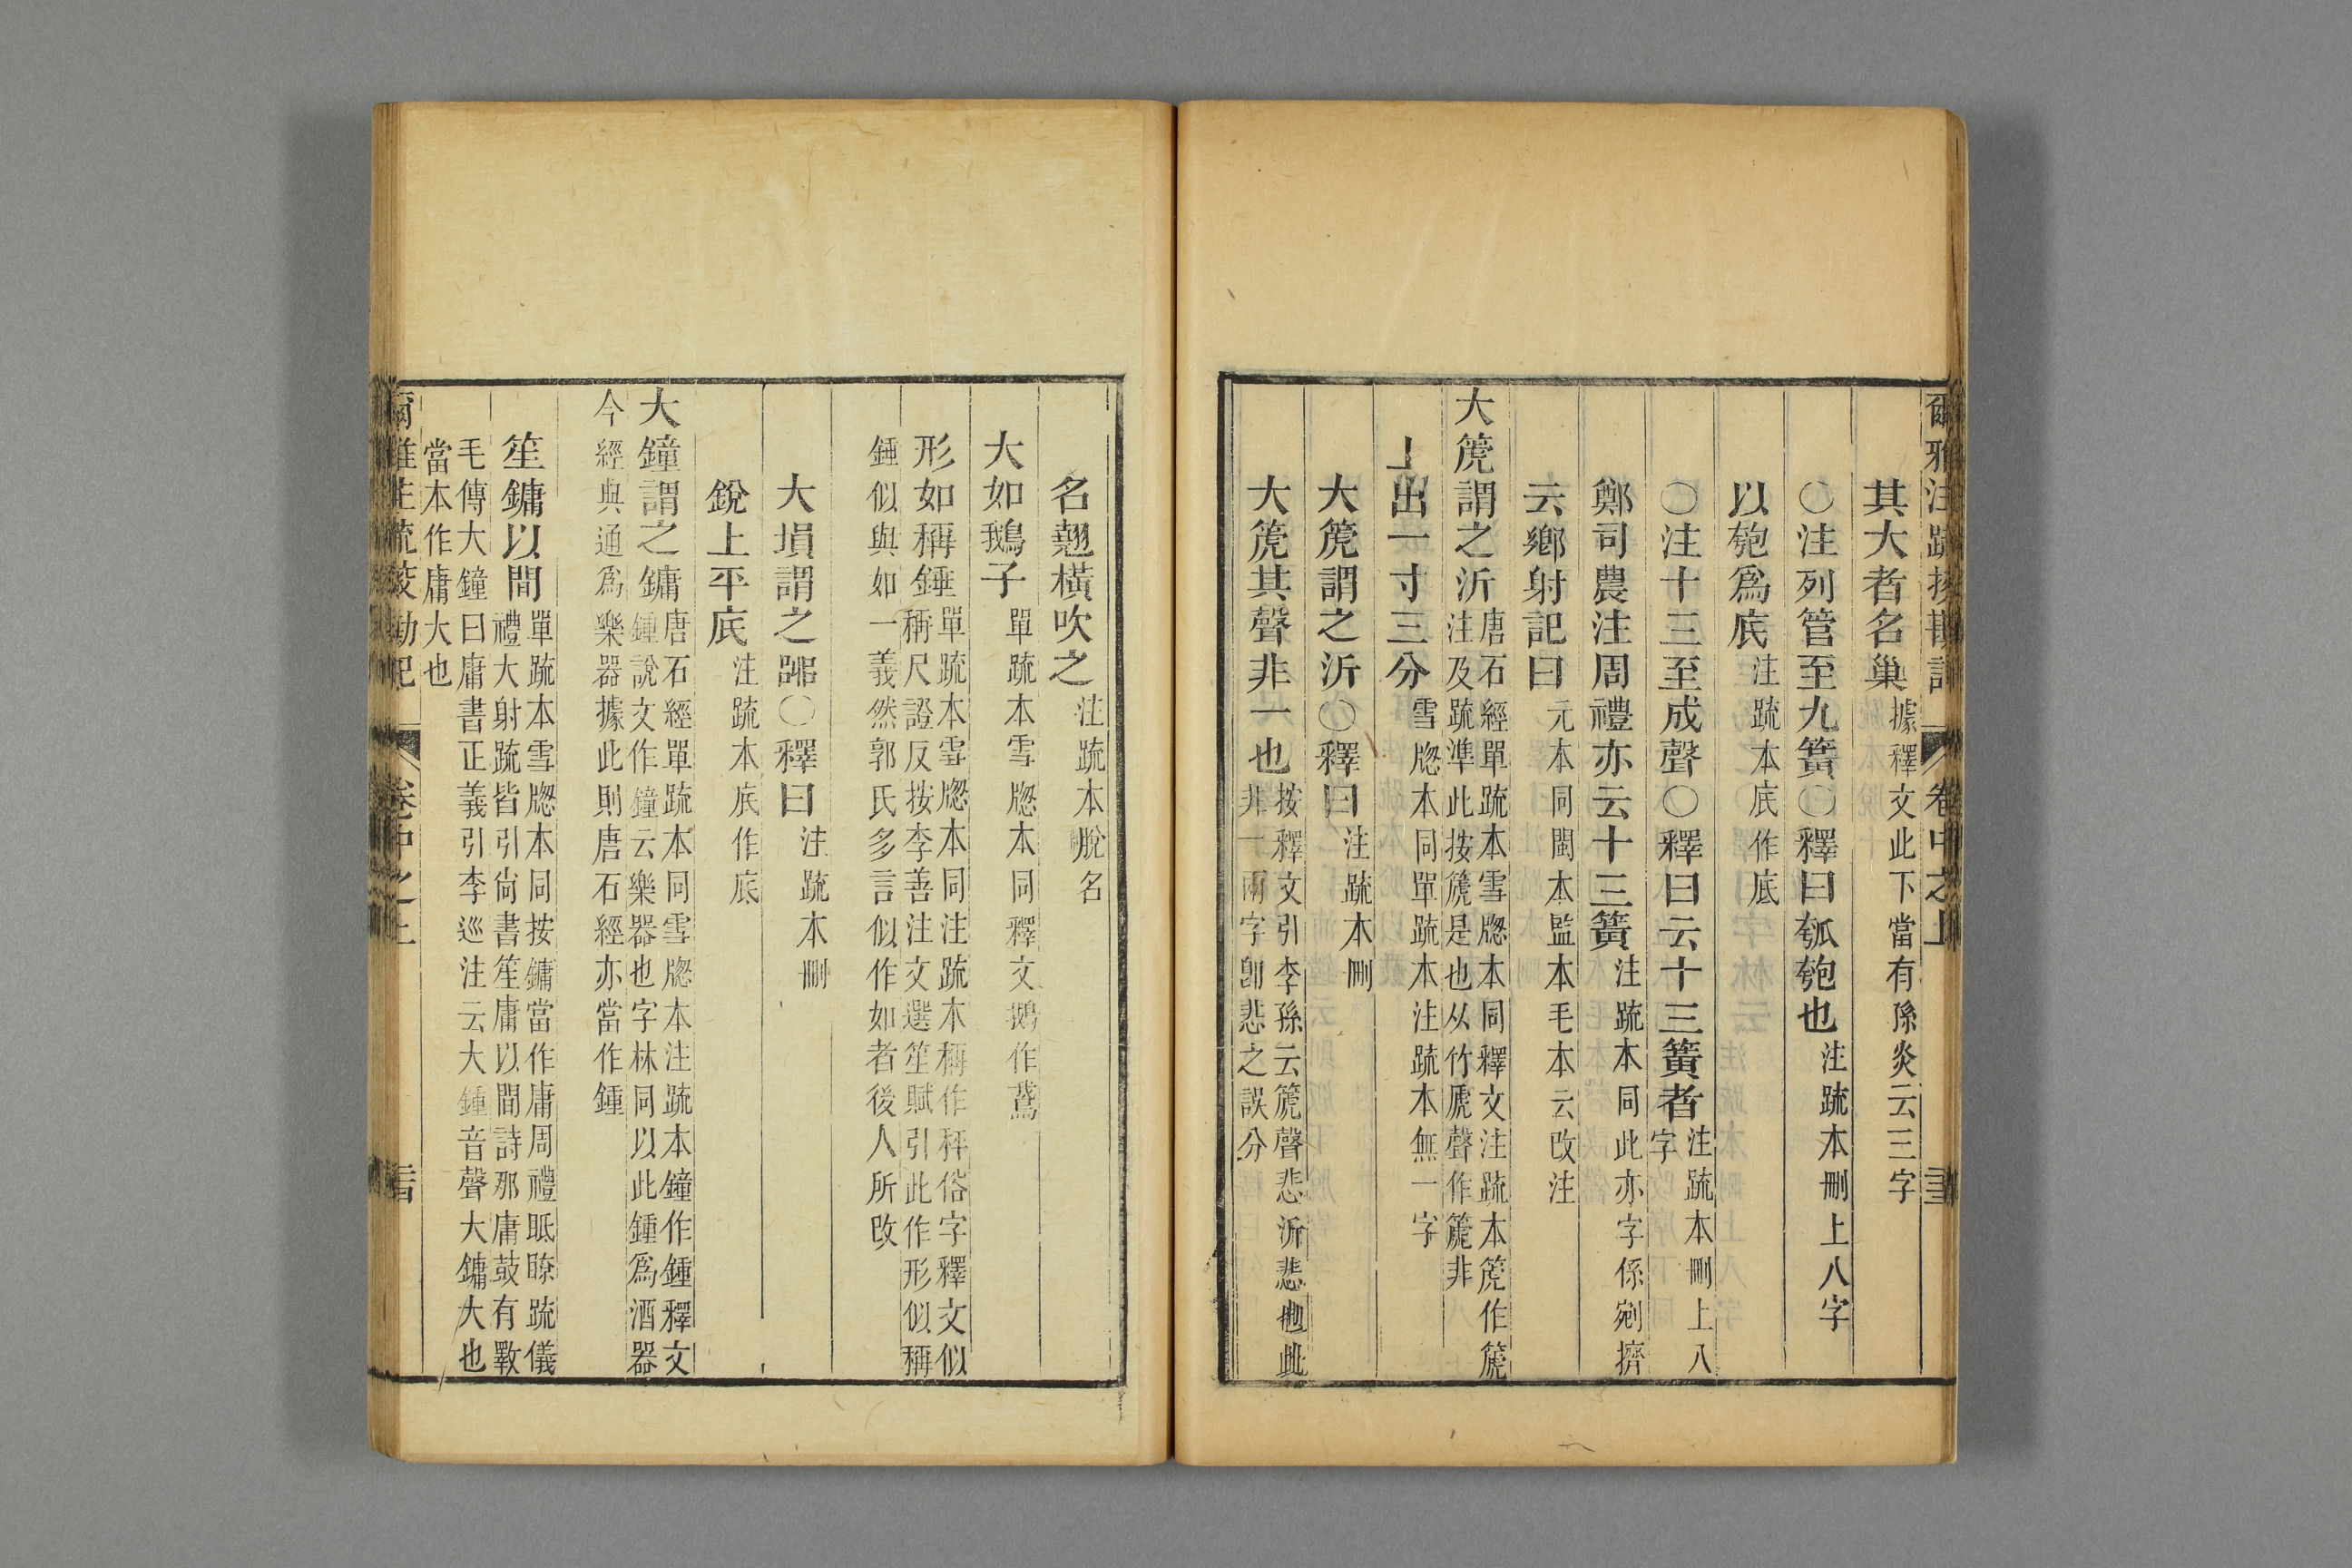 爾雅注疏挍勘記 卷中之上
其大者名巢據釋文此下當有孫炎云三字
○注列管至九簧○釋曰瓠匏也注疏本刪上八字
以匏爲底注疏本底作底
○注十三至成聲○釋曰云十三簧者注疏本刪上八字
鄭司農注周禮亦云十三簧注疏本同此亦字係剜擠
云鄉射記曰元本同閩本監本毛本云改注
大箎謂之沂唐石經單疏本雪牕本同釋文注疏本箎作篪
注及疏準此按篪是也从竹虒聲作箎非
上出一寸三分雪牕本同單疏本注疏本無一字
大箎謂之沂○釋曰注疏本刪
大箎其聲非一也按釋文引李孫云箎聲悲沂悲也此
非一兩字卽悲之誤分
名翹橫吹之注疏本脫名
大如鵝子單疏本雪牕本同釋文鵝作鵞
形如稱錘單疏本雪牕本同注疏本稱作秤俗字釋文似
稱尺證反按李善注文選笙賦引此作形似稱
錘似與如一義然郭氏多言似作如者後人所改
大塤謂之嘂○釋曰注疏本刪
銳上平底注疏本底作底
大鐘謂之鏞唐石經單疏本同雪牕本注疏本鐘作鍾釋文
鍾說文作鐘云樂器也字林同以此鍾爲酒器
今經與通爲樂器據此則唐石經亦當作鍾
笙鏞以間單疏本雪牕本同按鏞當作庸周禮眡瞭疏儀
禮大射疏皆引尚書笙庸以間詩那庸鼓有斁
毛傳大鐘曰庸書正義引李巡注云大鍾音聲大鏞大也
當本作庸大也
爾雅注疏挍勘記 卷中之上